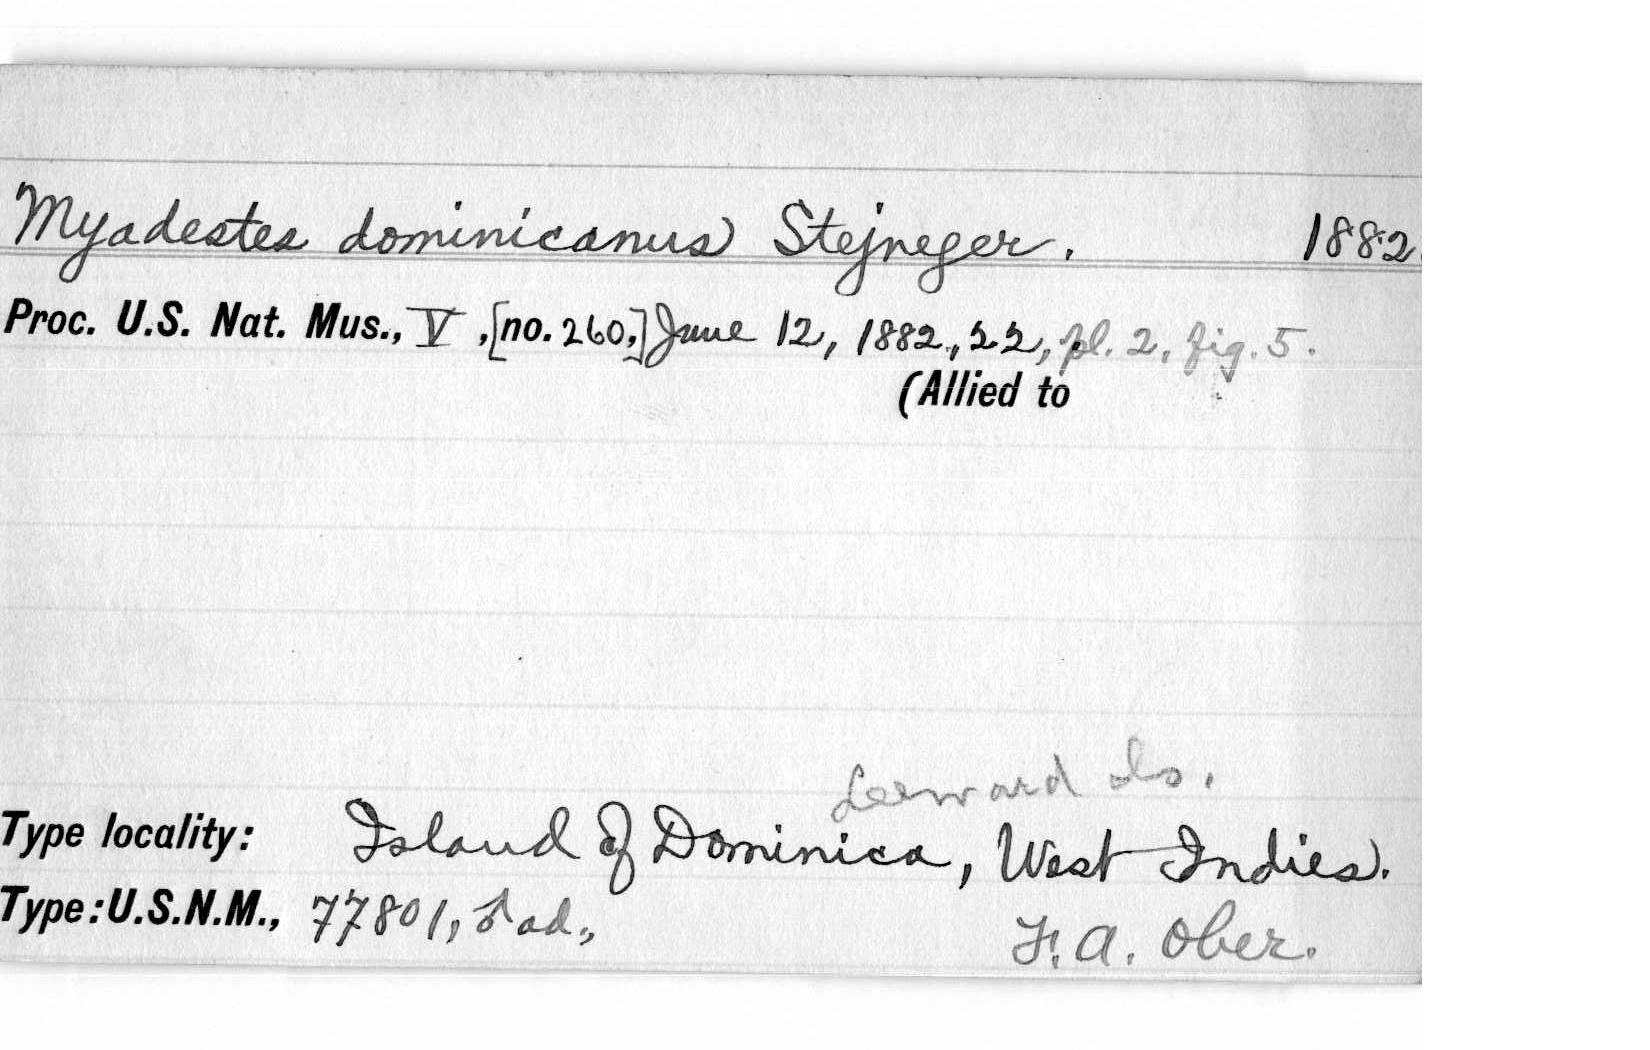 Myadestes dominicanus Stejneger. 1882.
Proc. U.S. Nat. Mus., V, [no. 260,] June 12, 1882, 22, pl. 2, fig. 5.
(Allied to
Leeward Is.
Type locality: Island of Dominica, West Indies.
Type: U.S.N.M., 77801, ♂ ad., F. A. Ober.